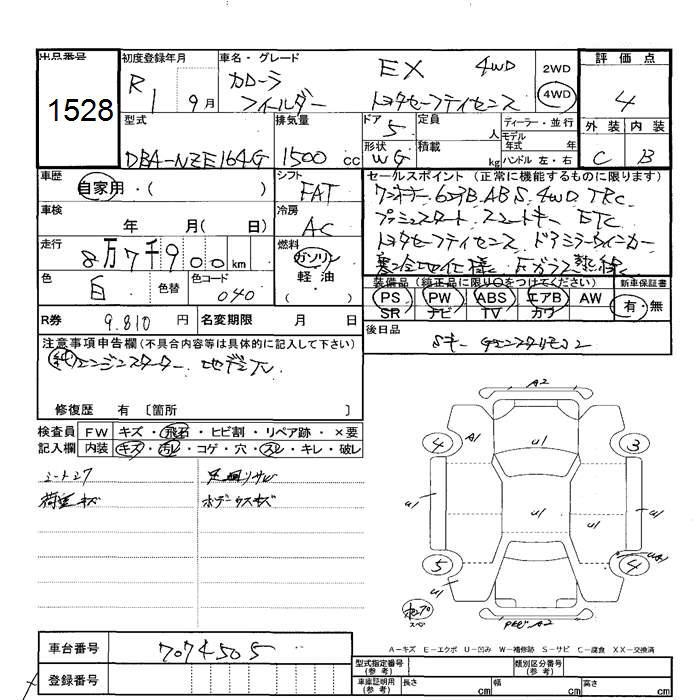 出品番号 初度登録年月 車名・グレード 評価点
1528 R1 9月 カローラ EX 4WD 2WD 4
フィールダー トヨタセーフティセンス 4WD
型式 排気量 ドア 定員 ディーラー・並行 外装 内装
DBA-NZE164G 1500cc 5 人 モデル年式 年
形状 WG 積載 kg ハンドル 左・右 C B
車歴 シフト セールスポイント (正常に機能するものに限ります)
自家用・( ) FAT ワンオーナー 6ヶ月B.ABS.4WD TRC
車検 冷房 プッシュスタート スマートキー ETC
年 月( 日) AC トヨタセーフティセンス ドアミラーウィンカー
走行 燃料 寒冷地仕様 Fガラス熱線
8万7千900km ガソリン
軽油
( )
色 白 色替 色コード 040
装備品 (純正品に限り○をつけてください) 新車保証書
PS PW ABS エアB AW 有・無
SR ナビ TV カワ
R券 9.810円 名変期限 月 日
後日品
Sキー
注意事項申告欄(不具合内容等は具体的に記入して下さい)
純エンジンスターター 地デジTV
修復歴 有 〔箇所 〕
検査員 FW キズ・飛石・ヒビ割・リペア跡・×要
記入欄 内装 キズ・汚レ・コゲ・穴・スレ・キレ・破レ
シートシワ 足廻りサビ
荷室キズ ボデー少スキズ
A2
4 A1 U1 3
a1 U1 U1 a1
U1
5 U1 4
U1
スペ A2
車台番号 7074505
登録番号
A-キズ E-エクボ U-凹み W-補修跡 S-サビ C-腐食 XX-交換済
型式指定番号(参考) 類別区分番号(参考)
車庫証明用(参考) 長さ cm 幅 cm 高さ cm